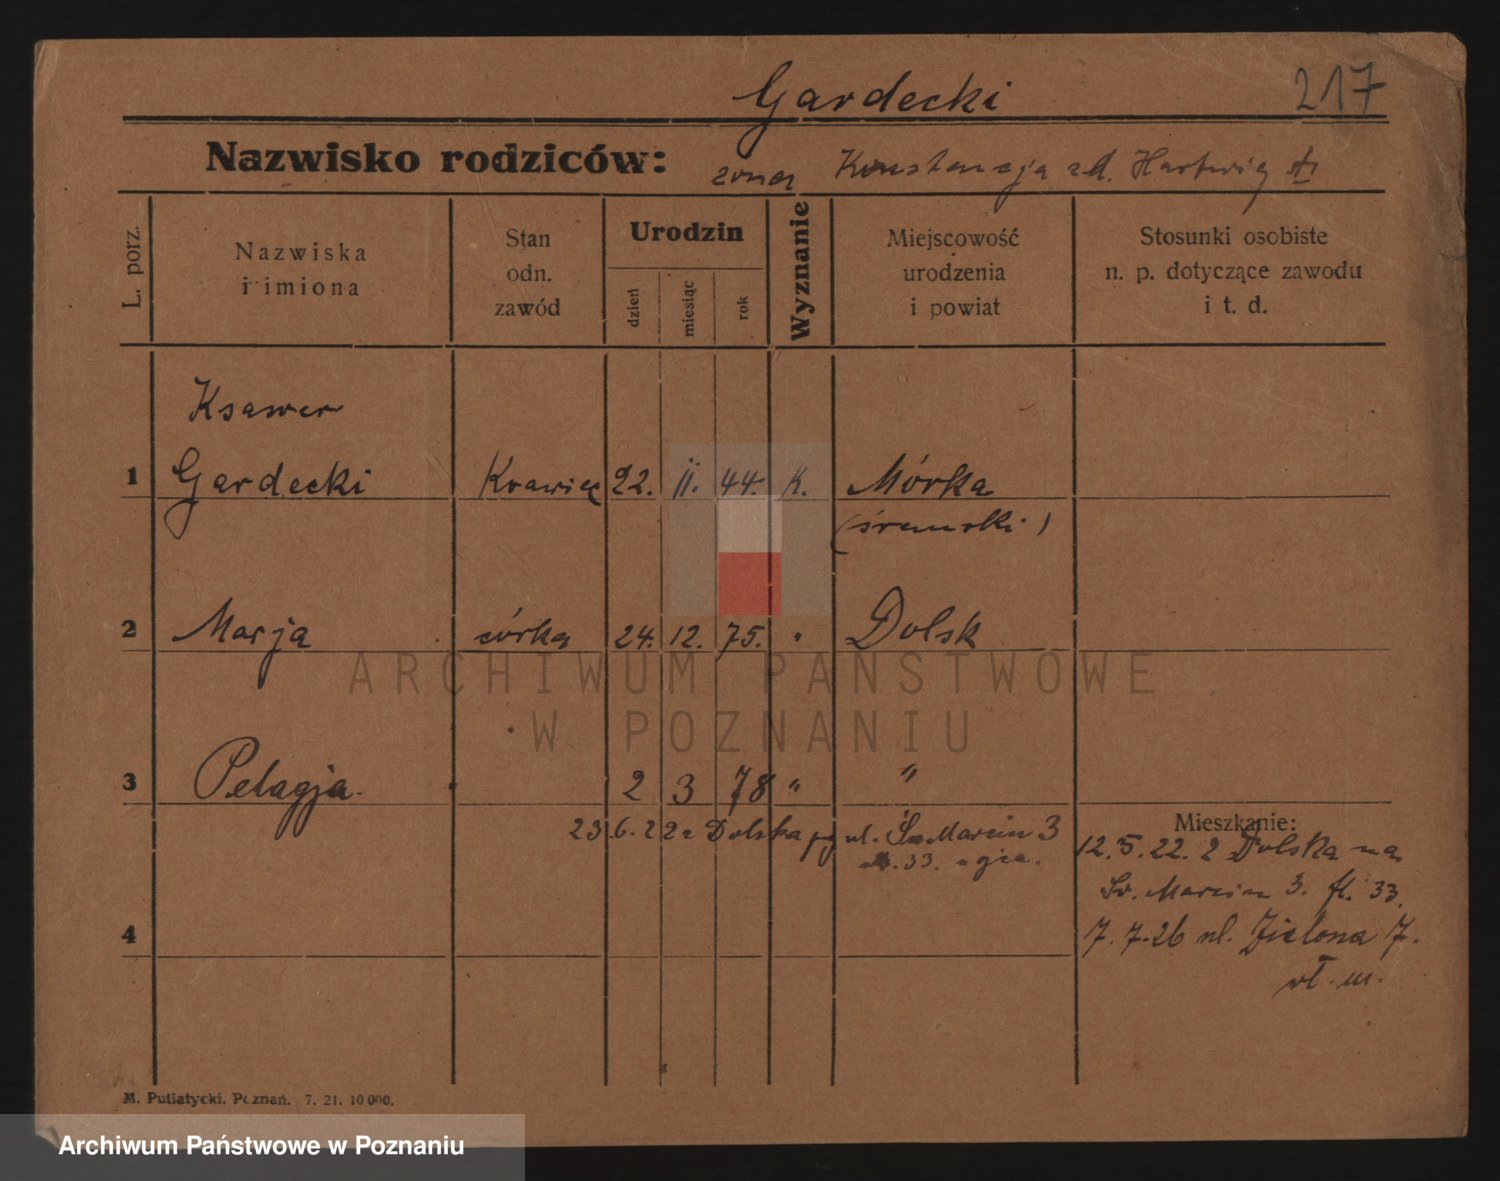 Gardecki 217
Nazwisko rodziców: żona Konstancja zd. Hartwig
L. porz.
Nazwiska
i imiona
Stan
odn.
zawód
Urodzin
dzień
miesiąc
rok
Wyznanie
Miejscowość
urodzenia
i powiat
Stosunki osobiste
n. p. dotyczące zawodu
i t. d.
Ksawer
1 Gardecki Krawiec 22. 11. 44. K. Mórka
(śremski)
2 Marja córka 24. 12. 75. " Dolsk
ARCHIWUM PAŃSTWOWE
W POZNANIU
3 Pelagja. 2 3 78 " "
Mieszkanie:
23.6.22 z Dolska ul. Św Marcin 3
33.
12.5.22. z Dolska na
Św. Marcin 3. fl. 33.
4
7.7.26 ul. Zielona 7.
wł. m.
M. Putiatycki, Poznań. 7. 21. 10 000.
Archiwum Państwowe w Poznaniu